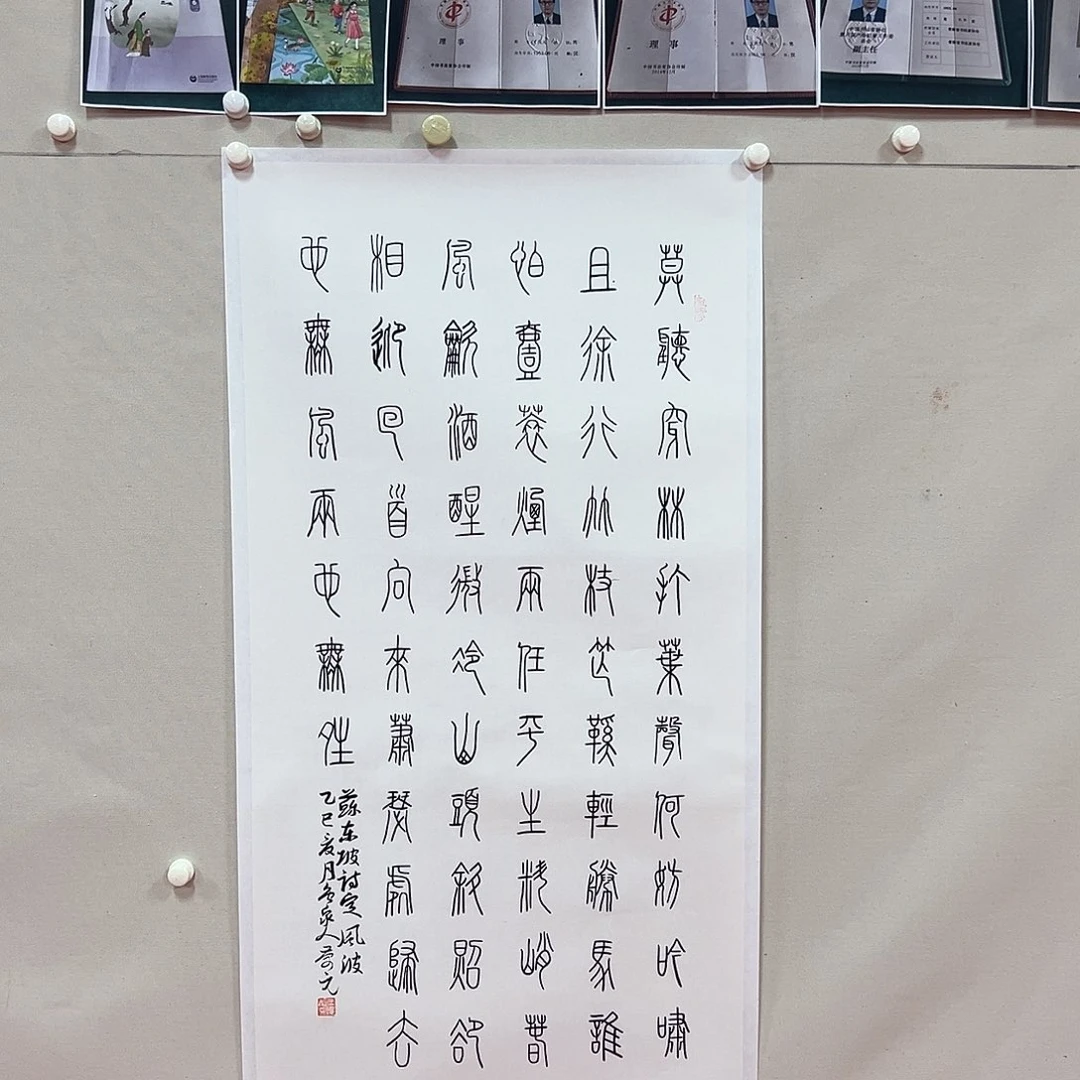 理事
理事
副主任
莫聽穿林打葉聲何妨吟嘯
且徐行竹杖芒鞵輕勝馬誰
怕壹蓑煙雨任平生料峭春
風龡酒醒微冷山頭斜照卻
相迎回首向來蕭瑟處歸去
也無風雨也無夝
蘇东坡詩定風波
乙巳夏月人元